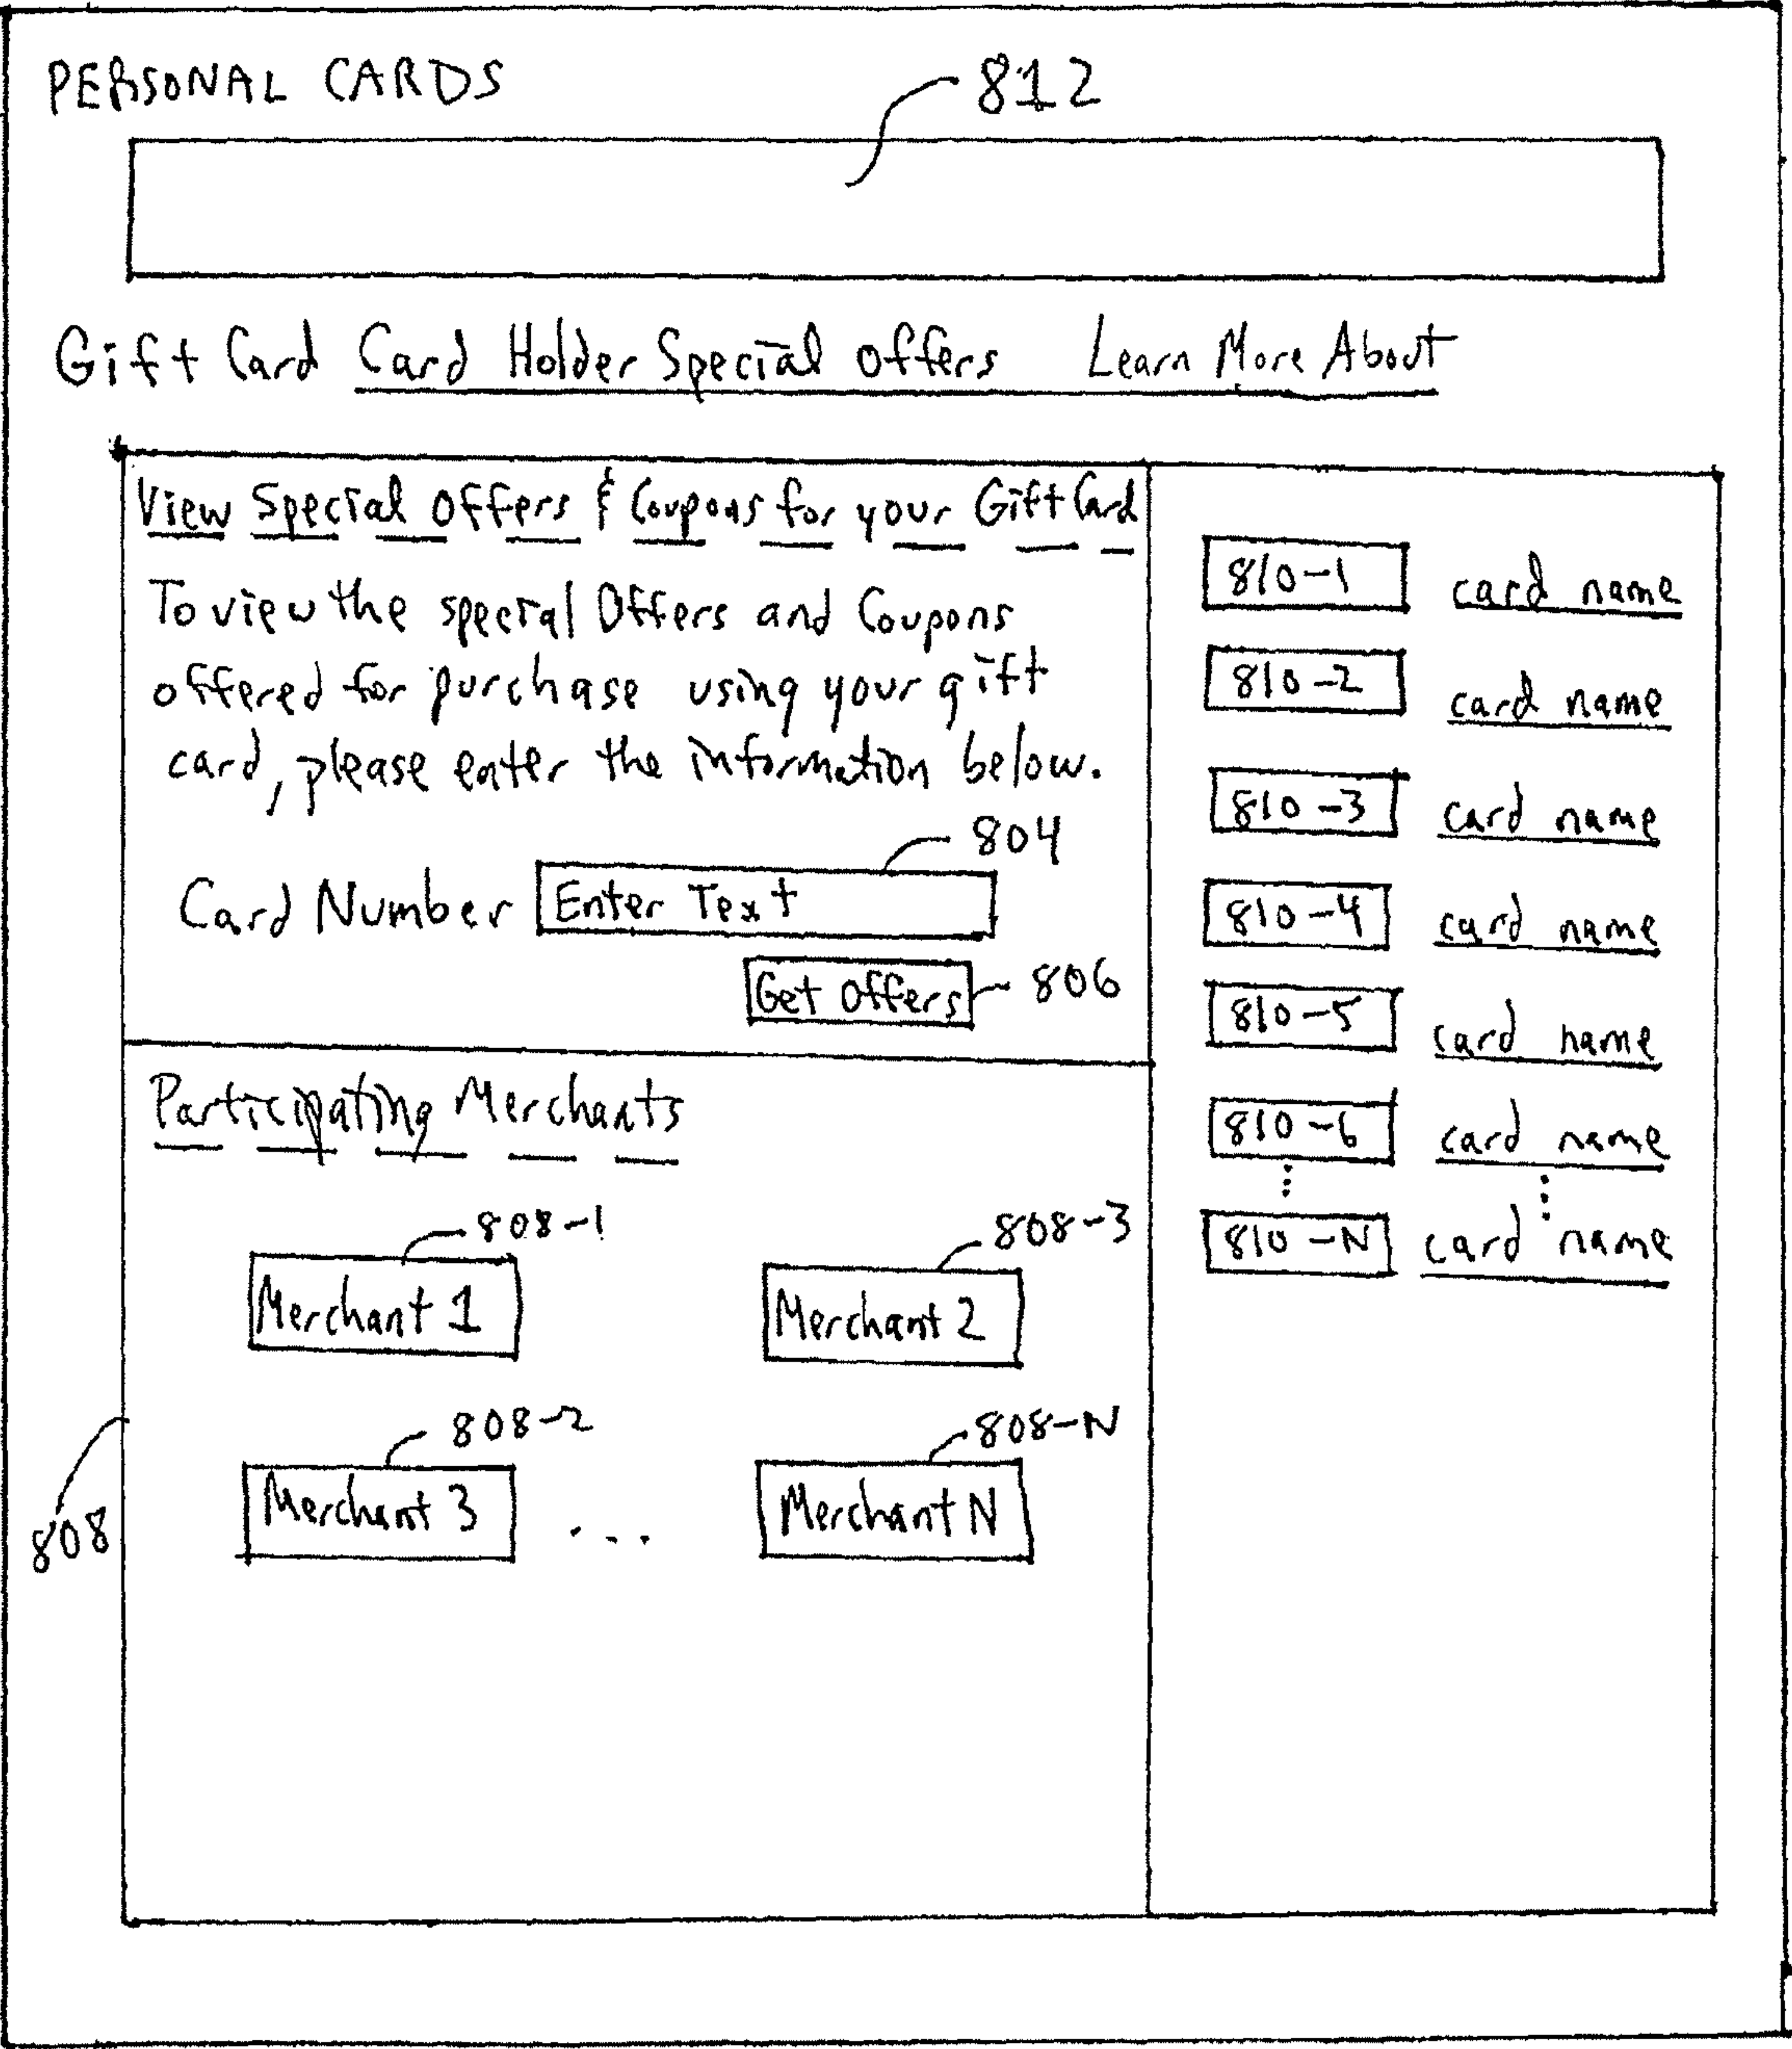 PERSONAL CARDS
812
Gift Card Card Holder Special Offers Learn More About
View Special Offers & Coupons for your Gift Card
To view the special Offers and Coupons
offered for purchase using your gift
card, please enter the information below.
804
Card Number Enter Text
Get Offers 806
Participating Merchants
808-1 808-3
Merchant 1 Merchant 2
808-2 808-N
Merchant 3 ... Merchant N
808
810-1 card name
810-2 card name
810-3 card name
810-4 card name
810-5 card name
810-6 card name
810-N card name